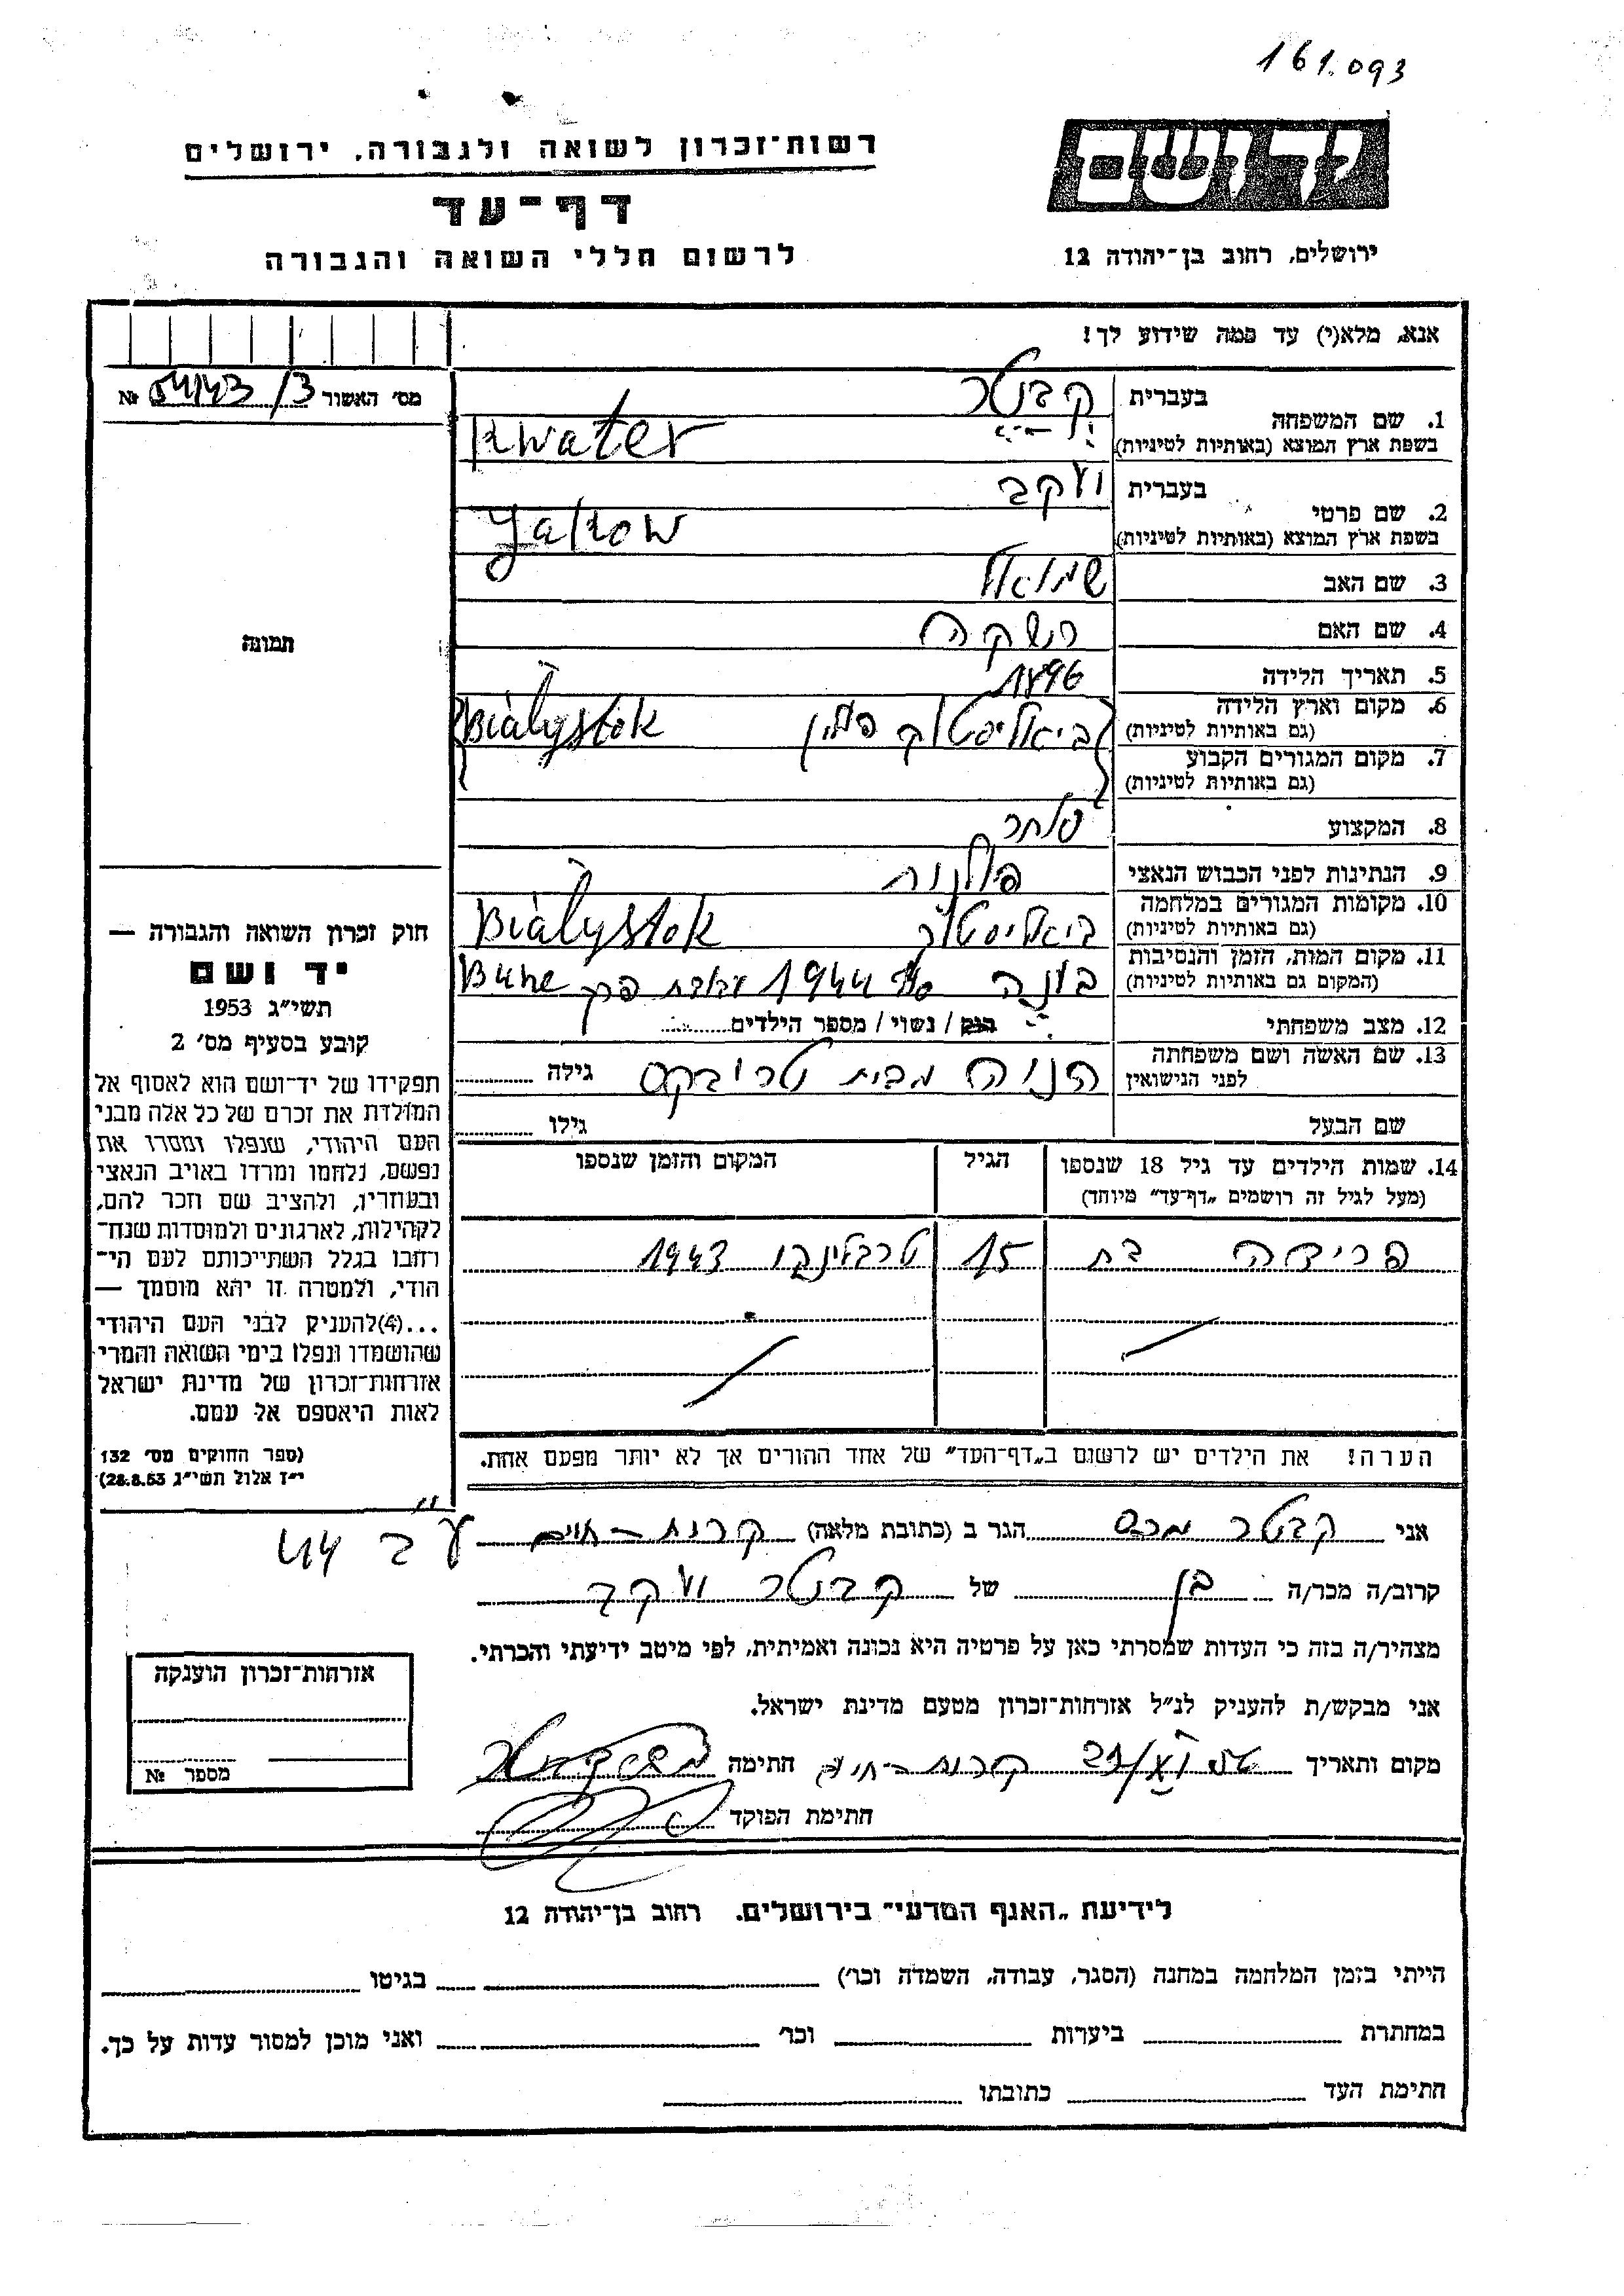 161.093
רשות־זכרון לשואה ולגבורה, ירושלים
יד ושם
דף־עד
לרשום חללי השואה והגבורה
ירושלים, רחוב בן־יהודה 12
אנא, מלא(י) עד כמה שידוע לך!
מס׳ האשור 54143/3 №
1. שם המשפחה בעברית קבטר
בשפת ארץ המוצא (באותיות לטיניות) Kwater
2. שם פרטי בעברית יעקב
בשפת ארץ המוצא (באותיות לטיניות) Yakow
3. שם האב שמואל
4. שם האם
5. תאריך הלידה 1896
6. מקום וארץ הלידה (גם באותיות לטיניות) ביאליסטוק פולין Białystok
7. מקום המגורים הקבוע (גם באותיות לטיניות)
8. המקצוע סוחר
9. הנתינות לפני הכבוש הנאצי פולנית
10. מקומות המגורים במלחמה (גם באותיות לטיניות) ביאליסטוק Białystok
11. מקום המות, הזמן והנסיבות (המקום גם באותיות לטיניות) בונה סוף 1944 עבודת פרך Bune
12. מצב משפחתי רוק / נשוי / מספר הילדים
13. שם האשה ושם משפחתה לפני הנישואין מבית גילה
שם הבעל גילו
14. שמות הילדים עד גיל 18 שנספו (מעל לגיל זה רושמים „דף־עד״ מיוחד) הגיל המקום והזמן שנספו
פרידה בת 15 טרבלינקי 1943
הערה! את הילדים יש לרשום ב„דף־העד״ של אחד ההורים אך לא יותר מפעם אחת.
תמונה
חוק זכרון השואה והגבורה —
יד ושם
תשי״ג 1953
קובע בסעיף מס׳ 2
תפקידו של יד־ושם הוא לאסוף אל
המולדת את זכרם של כל אלה מבני
העם היהודי, שנפלו ומסרו את
נפשם, נלחמו ומרדו באויב הנאצי
ובעוזריו, ולהציב שם וזכר להם,
לקהילות, לארגונים ולמוסדות שנח־
רבו בגלל השתייכותם לעם הי־
הודי, ולמטרה זו יהא מוסמך —
...(4)להעניק לבני העם היהודי
שהושמדו ונפלו בימי השואה והמרי
אזרחות־זכרון של מדינת ישראל
לאות היאספם אל עמם.
(ספר החוקים מס׳ 132
י״ז אלול תשי״ג 28.8.53)
אני קבטר הגר ב (כתובת מלאה) קרית-חיים ב 44
קרוב/ה מכר/ה בן של קבטר יעקב
מצהיר/ה בזה כי העדות שמסרתי כאן על פרטיה היא נכונה ואמיתית, לפי מיטב ידיעתי והכרתי.
אני מבקש/ת להעניק לנ״ל אזרחות־זכרון מטעם מדינת ישראל.
מקום ותאריך קרית-חיים חתימה
חתימת הפוקד
אזרחות־זכרון הוענקה
מספר №
לידיעת „האגף המדעי״ בירושלים, רחוב בן־יהודה 12
הייתי בזמן המלחמה במחנה (הסגר, עבודה, השמדה וכו׳) בגיטו
במחתרת ביערות וכו׳ ואני מוכן למסור עדות על כך.
חתימת העד כתובתו